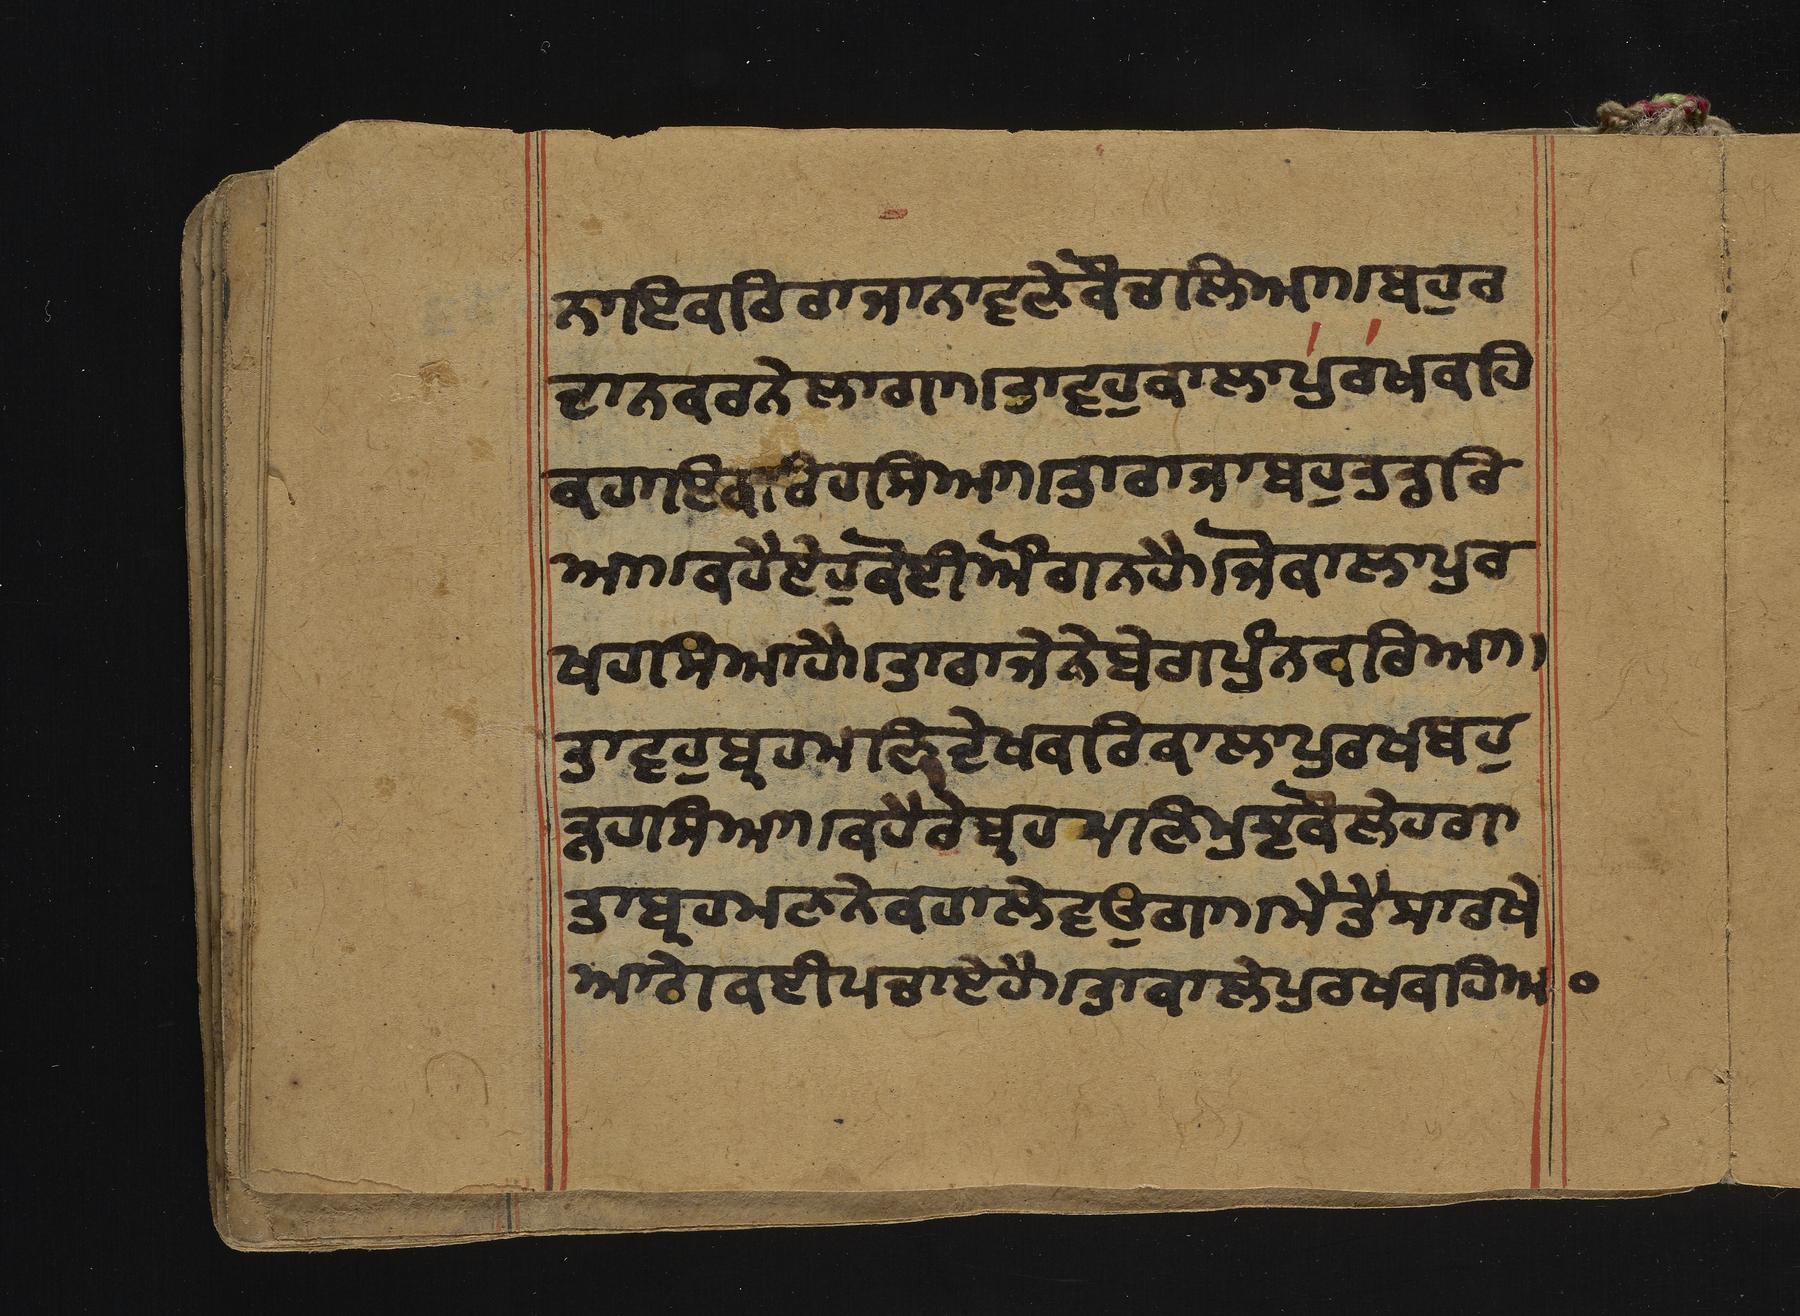 ਨਾਇਕਰਿਰਾਜਾਨਾਵ੍ਹਣੇਕੌਚਾਲਿਆ।ਬਹੁਰ
ਦਾਨਕਰਨੇਲਾਗਾ।ਤਾਵਹੁਕਾਲਾਪੁਰਖਕਹਿ
ਕਹਾਇਕਰਿਹਸਿਆ।ਤਾਰਾਜਾਬਹੁਤੁਡਰਿ
ਆ।ਕਹੈਏਹੁਕੋਈਔਗਨਹੈ।ਜੋਕਾਲਾਪੁਰ
ਖਹਸਿਆਹੈ।ਤਾਰਾਜੇਨੇਬੇਗਪੁੰਨਕਰਿਆ।
ਤਾਵਹੁਬ੍ਰਹਮਣਿਦੇਖਕਰਿਕਾਲਾਪੁਰਖਬਹੁ
ਤੁਹਸਿਆ।ਕਹੈਰੇਬ੍ਰਹਮਣਿਮੁਝਕੌਲੇਹਗਾ
ਤਾਬ੍ਰਹਮਣਨੇਕਹਾਲੇਵਉਗਾ।ਮੈਤੈਸਾਰਖੇ
ਆਗੇਕਈਪਚਾਏਹੈ।ਤਾਕਾਲੇਪੁਰਖਕਹਿਆ੦